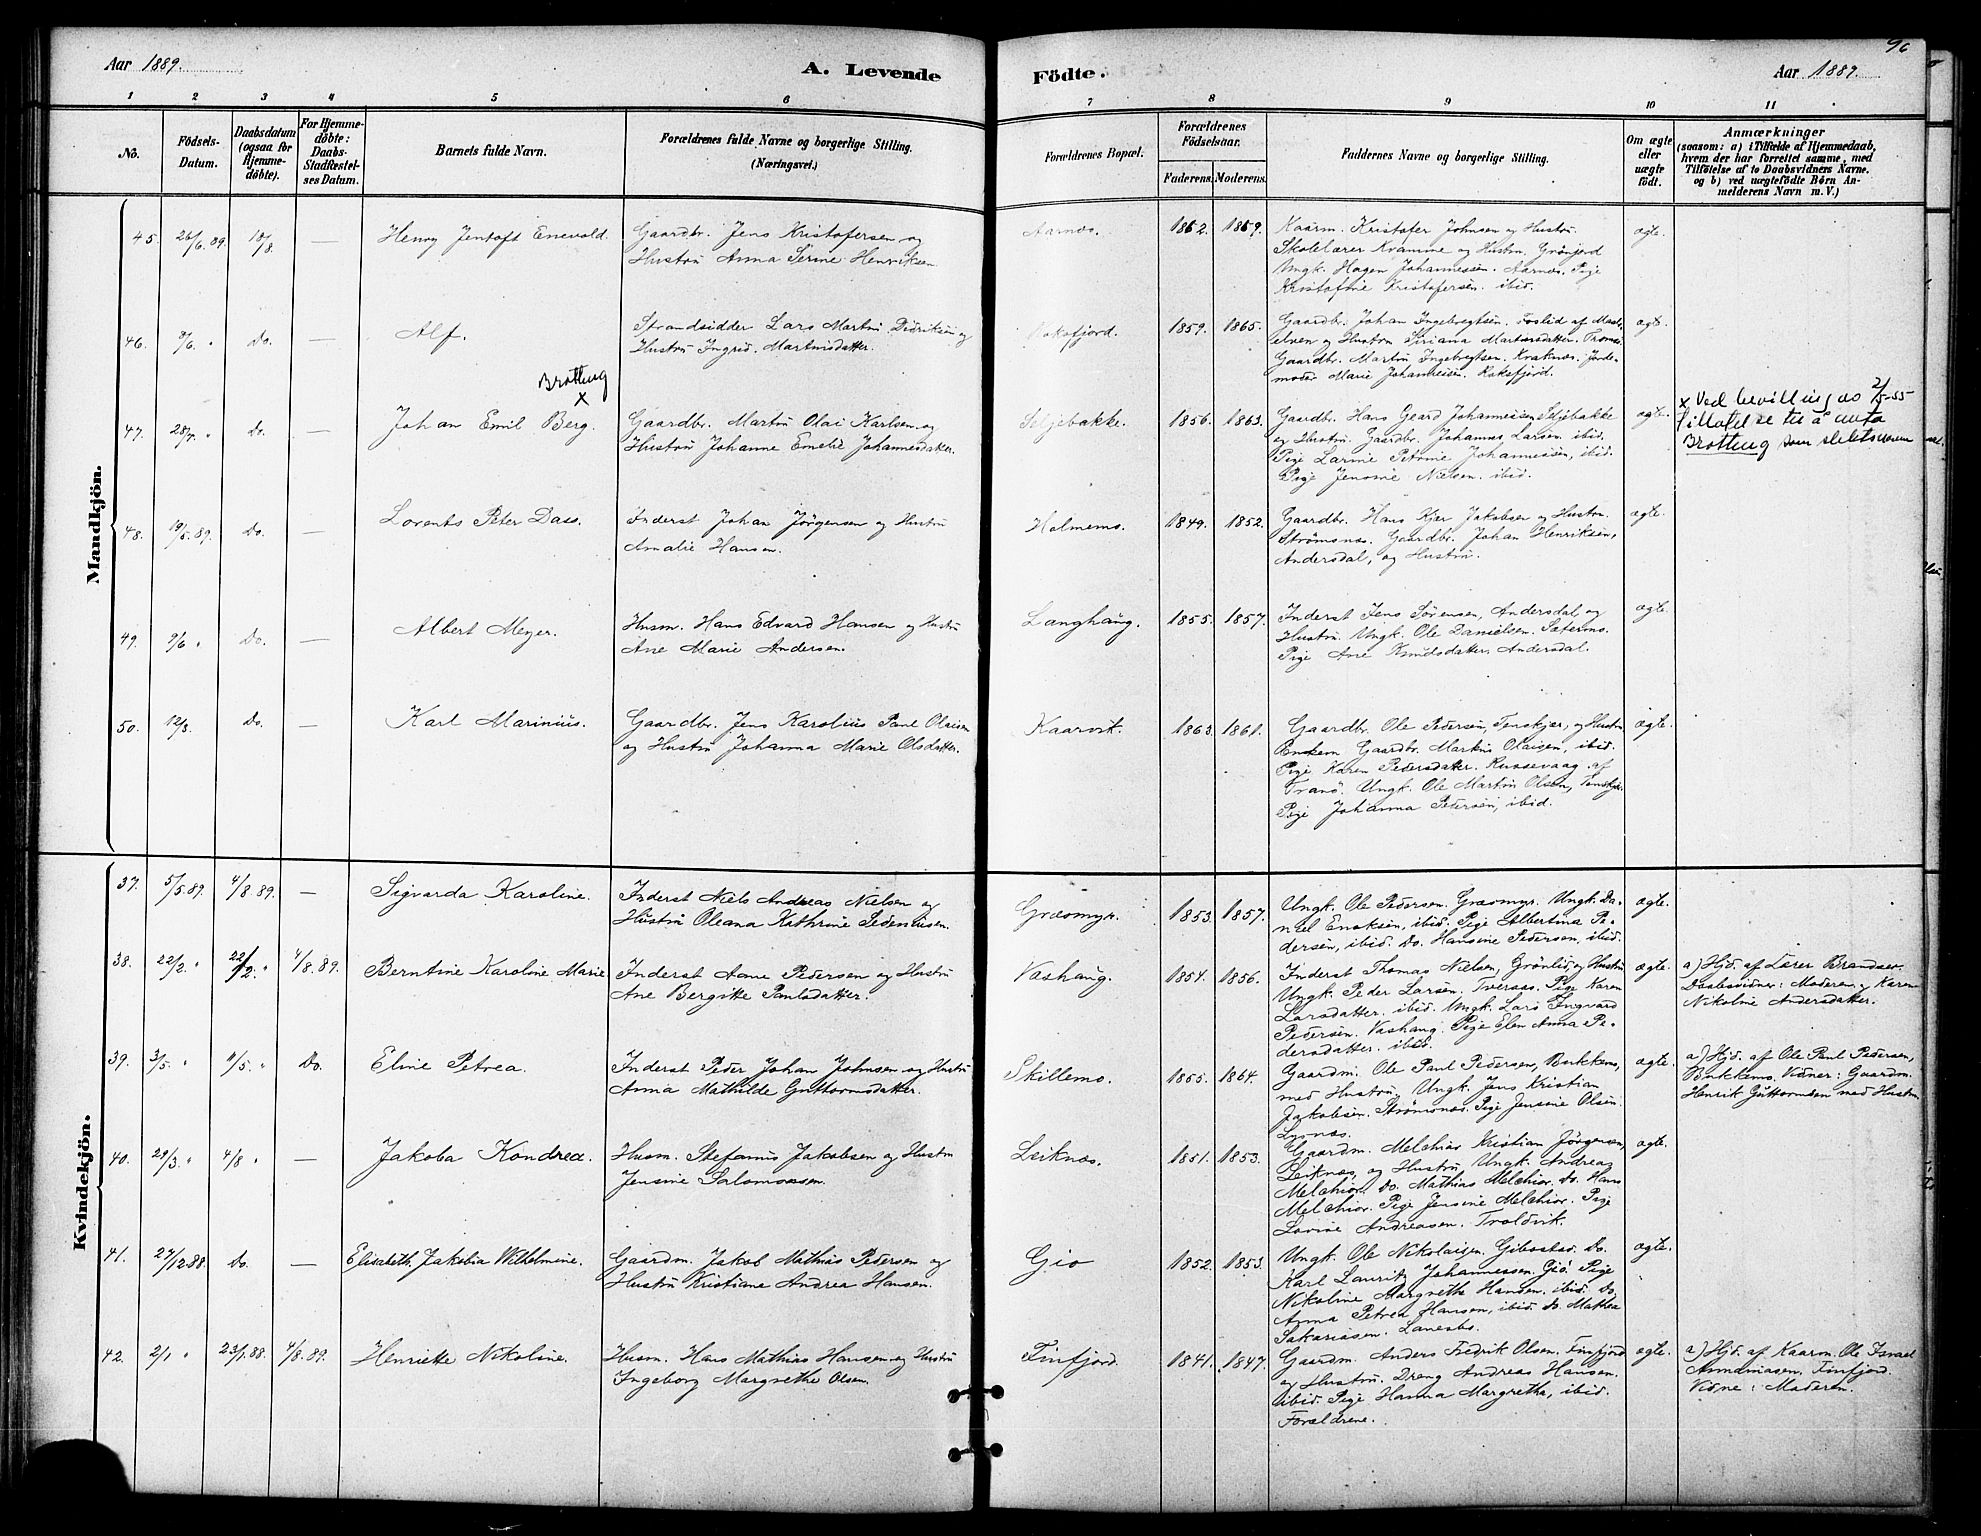 96
Aar 1889.
A. Levende
Födte.
Aar 1889.
1 2 3 4 5 6 7 8 9 10 11
No.
Födsels-Datum.
Daabsdatum (ogsaa for Hjemme-döbte).
For Hjemme-döbte: Daabs-Stadfæstel-ses Datum.
Barnets fulde Navn.
Forældrenes fulde Navne og borgerlige Stilling. (Næringsvei.)
Forældrenes Bopæl.
Forældrenes Födselsaar.
Faderens. Moderens.
Faddernes Navne og borgerlige Stilling.
Om ægte eller uægte födt.
Anmærkninger
(saasom: a) i Tilfælde af Hjemmedaab,
hvem der har forrettet samme, med
Tilföielse af to Daabsvidners Navne.
og b) ved uægtefödte Börn An-
melderens Navn m. V.)
Mandkjön.
45. 26/6.89. 18/8. — Henry Jentoft Enevold.
Gaardbr. Jens Kristofersen og
Hustru Anna Serine Henriksen
Aarnes. 1862. 1869.
Kaarm. Kristofer Johnsen og Hustru
Skolelærer Kramme og Hustru, Grönjord
Ungk. Hagen Johannessen. Aarnes. Pige
Kristofine Kristofersen. ibid.
ægte.
46. 9/6. " Do. — Alf.
Strandsidder Lars Martin Didriksen og
Hustru Ingrid. Martinisdatter.
Roksfjord. 1859. 1865.
Gaardbr. Johan Ingebregtsen. Foslid af Maals-
elven og Hustru Siriana Martinsdatter.
Gaardbr. Martin Ingebregtsen. Kraknes. Jorde-
moder Marie Johannesen. Roksfjord.
ægte.
Brotteng
x
47. 28/7. " Do. — Johan Emil Berg.
Gaardbr. Martin Olai Karlsen og
Hustru Johanne Emelie Johannesdatter.
Seljebakke. 1856. 1863.
Gaardbr. Hans Geard Johannessen, Seljebakke
og Hustru. Gaardbr. Johannes Larsen. ibid.
Pige Larine Petrine Johannessen, ibid.
Pige Jensine Nielsen. ibid.
ægte.
x Ved bevilling av 2/5-55
tillatelse til å anta
Brotteng som slektsnavn
48. 19/5.89. Do. — Lorents Peter Dass.
Inderst Johan Jörgensen og Hustru
Amalie Hansen.
Holmemo. 1849. 1852.
Gaardbr. Hans Kjær Jakobsen og Hustru.
Strömsnes. Gaardbr. Johan Henriksen,
Andersdal, og Hustru.
ægte.
49. 9/6 " Do. — Albert Meyer.
Husm. Hans Edvard Hansen og Hustru
Ane Marie Andersen.
Langhaug. 1855. 1857.
Inderst Jens Sörensen, Andersdal, og
Hustru. Ungk. Ole Danielsen. Sætermo.
Pige Ane Knudsdatter. Andersdal.
ægte.
50. 12/3. Do. — Karl Marinius.
Gaardbr. Jens Karolius Paul Olaisen
og Hustru Johanna Marie Olsdatter.
Kaarvik. 1863. 1861.
Gaardbr. Ole Pedersen, Tenskjær, og Hustru
Gaardbr. Martin Olaisen, ibid.
Pige Karen Pedersdatter. Russevaag af
Tranö. Ungk. Ole Martin Olsen, Tenskjær.
Pige Johanna Pedersen, ibid.
ægte.
Kvindekjön.
37. 5/5.89. 4/8.89. — Sigvarda Karoline.
Inderst Niels Andreas Nielsen og
Hustru Oleana Kathrine Pedersen.
Græsmyr. 1853. 1857.
Ungk. Ole Pedersen. Græsmyr. Ungk. Da-
niel Enoksen, ibid. Pige Albertina Pe-
dersen, ibid. Do. Hansine Pedersen, ibid.
ægte.
38. 22/2. " 22/2. " 4/8.89. Berntine Karoline Marie
Inderst Arne Pedersen og Hustru
Ane Bergitte Paulsdatter.
Vashaug. 1854. 1856.
Inderst Thomas Nielsen, Grönlid, og Hustru
Ungk. Peder Larsen. Tveraas. Pige Karen
Larsdatter. ibid. Ungk. Lars Ingvard
Pedersen. Vashaug. Pige Elen Anna Pe-
dersdatter. ibid.
ægte.
a) Hjd. af Lærer Brandser.
Daabsvidner: Moderen og Karen
Nikoline Andersdatter.
39. 3/5. " 11/5. " Do. Eline Petrea.
Inderst Peder Johan Johnsen og Hustru
Anna Mathilde Guttormsdatter.
Skillemo. 1865. 1864.
Gaardm. Ole Paul Pedersen, Bukkemo,
med Hustru, Ungk. Jens Kristian
Jakobsen. Strömsnes. Pige Jensine Olsen.
Lysnes.
ægte.
a) Hjd. af Ole Paul Pedersen,
Bukkemo. Vidner: Gaardm.
Henrik Guttormsen med Hustru
40. 29/3. " 4/8 " — Jakoba Kondrea.
Husm. Stefanus Jakobsen og Hustru
Jensine Salomonsen.
Leiknes. 1851. 1853.
Gaardm. Melchior Kristian Jörgensen,
Leiknes, og Hustru, Ungk. Andreas
Melchior. Do. Mathias Melchior. Do. Hans
Melchior. Pige Jensine Melchior. Pige
Lovise Andreasen. Troldvik.
ægte.
41. 27/12.88. Do. — Elisabeth Jakobia Wilhelmine.
Gaardm. Jakob Mathias Pedersen og
Hustru Kristiane Andrea Hansen.
Gio 1852. 1853.
Ungk. Ole Nikolaisen. Gibostad. Do.
Karl Lauritz Johannessen. Giö. Pige
Nikoline Margrethe Hansen. ibid. Do.
Anna Petrea Hansen, ibid. Do. Mathea
Sakariasen. Lanesbo.
ægte.
42. 2/1 " 23/1.88. 4/8.89. Henriette Nikoline.
Husm. Hans Mathias Hansen og Hustru
Ingeborg Margrethe Olsen.
Finfjord 1841. 1847.
Gaardm. Anders Fredrik Olsen. Finfjord
og Hustru. Dreng Andreas Hansen.
ibid. Pige Hanna Margrethe, ibid.
Forældrene.
ægte.
a) Hjd. af Kaarm. Ole Israel
Annaniasen, Finfjord.
Vidne: Moderen.